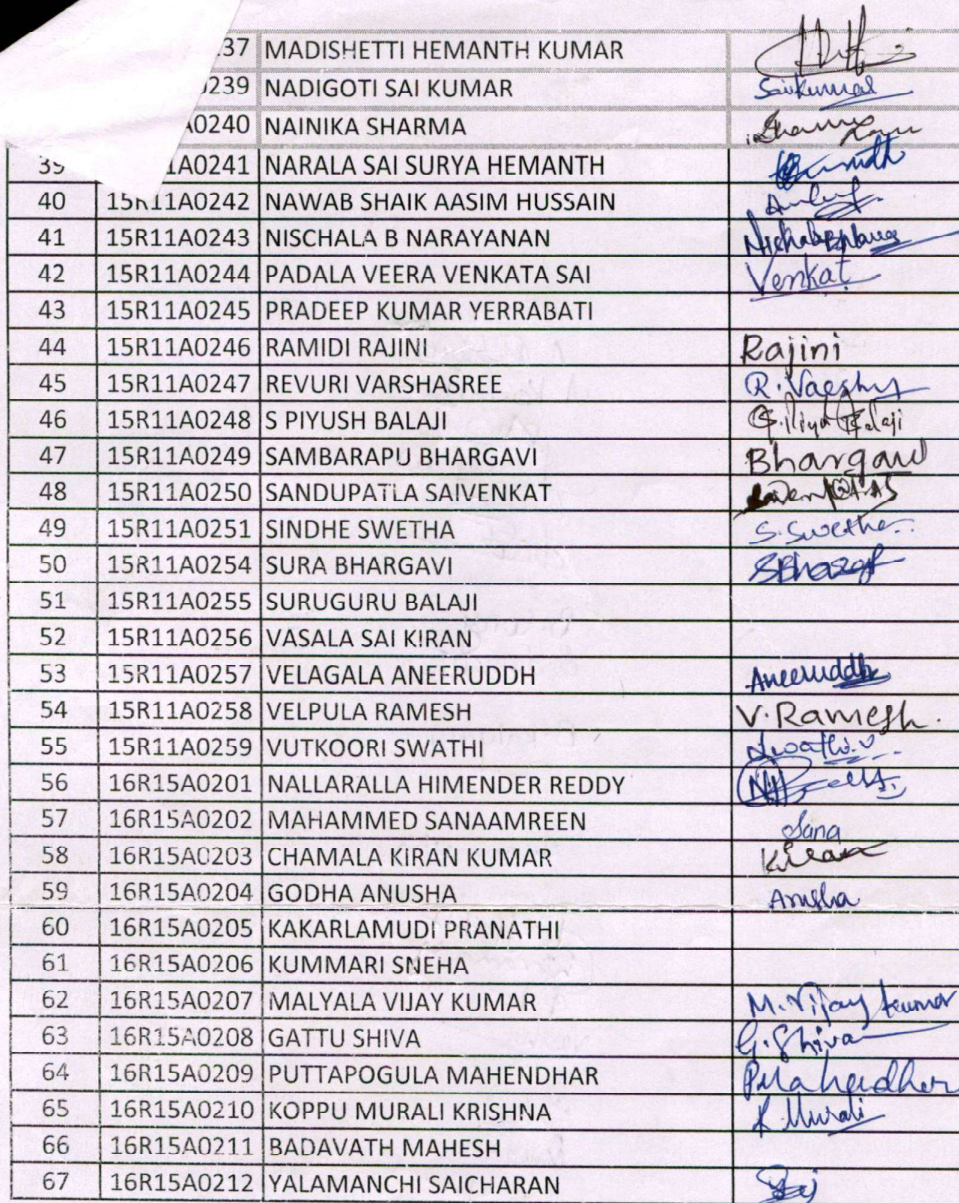 37 MADISHETTI HEMANTH KUMAR
0239 NADIGOTI SAI KUMAR Saikumar
A0240 NAINIKA SHARMA
39 1A0241 NARALA SAI SURYA HEMANTH
40 15R11A0242 NAWAB SHAIK AASIM HUSSAIN
41 15R11A0243 NISCHALA B NARAYANAN
42 15R11A0244 PADALA VEERA VENKATA SAI Venkat
43 15R11A0245 PRADEEP KUMAR YERRABATI
44 15R11A0246 RAMIDI RAJINI Rajini
45 15R11A0247 REVURI VARSHASREE
46 15R11A0248 S PIYUSH BALAJI
47 15R11A0249 SAMBARAPU BHARGAVI Bhargavi
48 15R11A0250 SANDUPATLA SAIVENKAT
49 15R11A0251 SINDHE SWETHA S. Swetha
50 15R11A0254 SURA BHARGAVI
51 15R11A0255 SURUGURU BALAJI
52 15R11A0256 VASALA SAI KIRAN
53 15R11A0257 VELAGALA ANEERUDDH Aneeruddh
54 15R11A0258 VELPULA RAMESH V.Ramesh.
55 15R11A0259 VUTKOORI SWATHI Swathi.V
56 16R15A0201 NALLARALLA HIMENDER REDDY
57 16R15A0202 MAHAMMED SANAAMREEN Sana
58 16R15A0203 CHAMALA KIRAN KUMAR Kiran
59 16R15A0204 GODHA ANUSHA Anusha
60 16R15A0205 KAKARLAMUDI PRANATHI
61 16R15A0206 KUMMARI SNEHA
62 16R15A0207 MALYALA VIJAY KUMAR M. Vijay kumar
63 16R15A0208 GATTU SHIVA G. Shiva
64 16R15A0209 PUTTAPOGULA MAHENDHAR P.Mahendhar
65 16R15A0210 KOPPU MURALI KRISHNA K. Murali
66 16R15A0211 BADAVATH MAHESH
67 16R15A0212 YALAMANCHI SAICHARAN